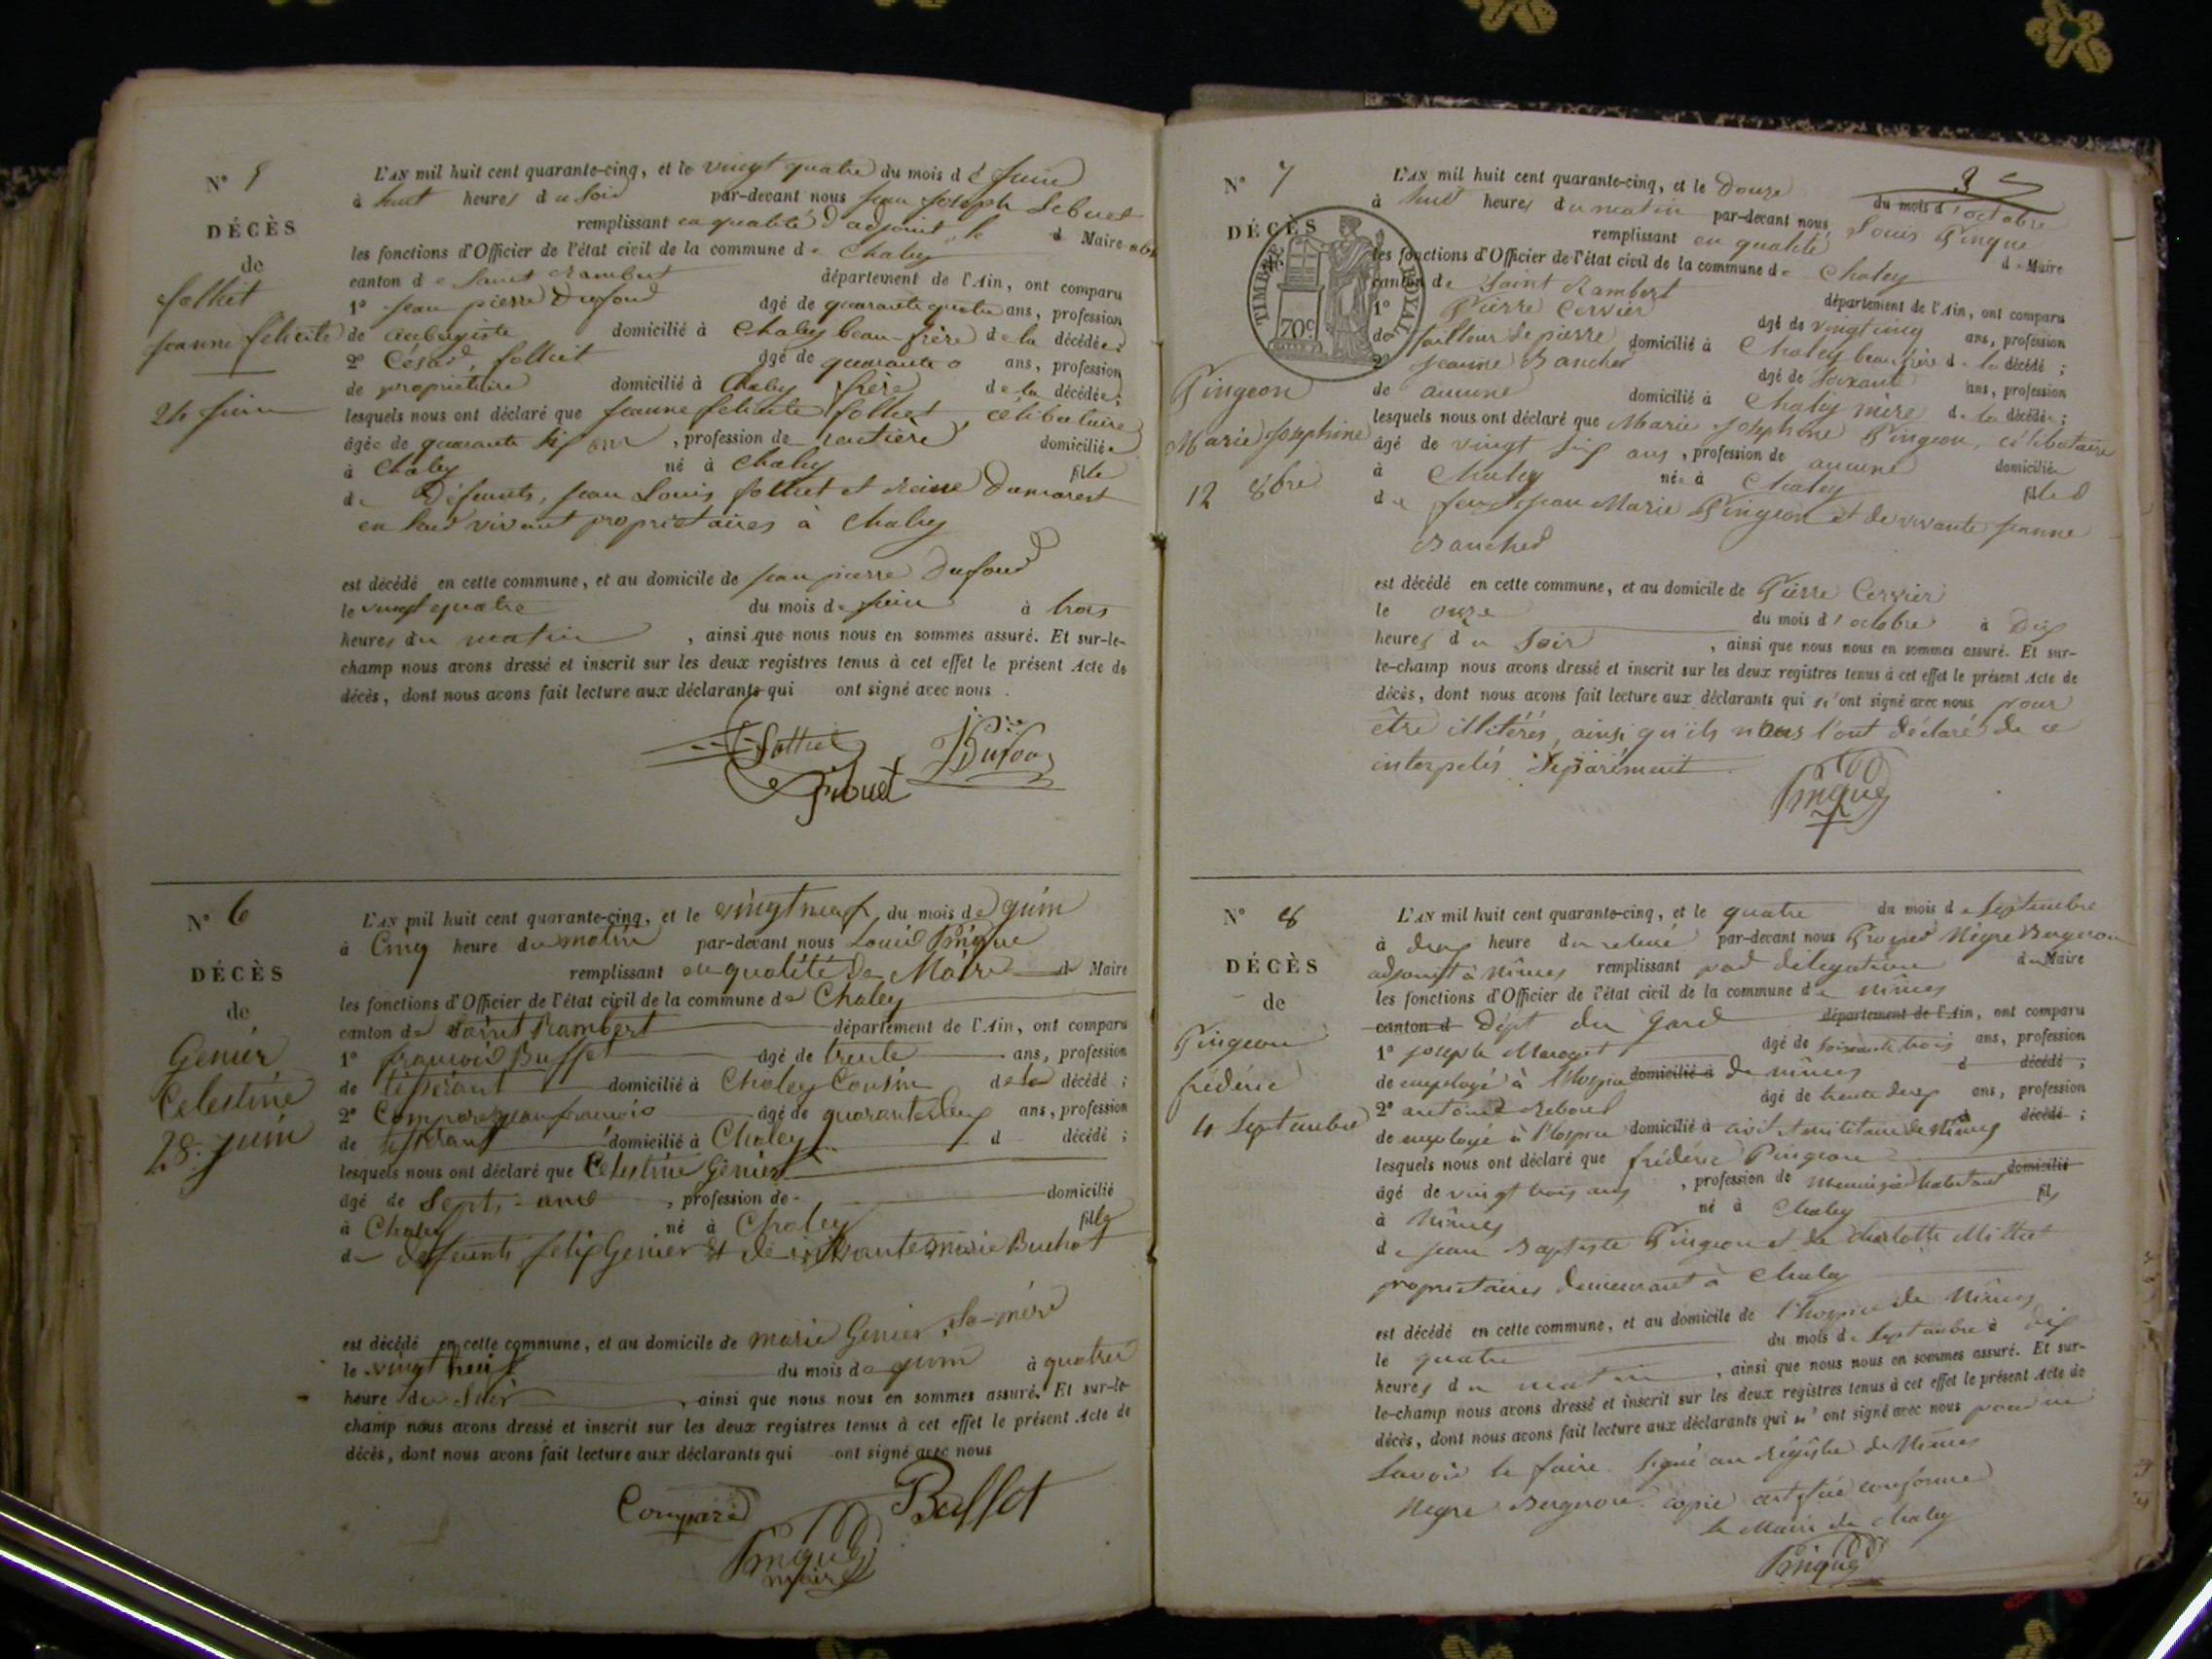 N° 5
DÉCÈS
de
folliet
jeanne félicité
24 juin
L'AN mil huit cent quarante-cinq, et le vingt quatre du mois de juin
à huit heures du soir par-devant nous jean joseph
remplissant en qualité d'adjoint le d Maire
les fonctions d'Officier de l'état civil de la commune de Chaley
canton de Saint Rambert département de l'Ain, ont comparu
1° jean pierre Dufour âgé de quarante quatre ans, profession
de aubergiste domicilié à Chaley beau-frère de la décédée;
2° César folliet âgé de quarante ans, profession
de propriétaire domicilié à Chaley frère de la décédée;
lesquels nous ont déclaré que jeanne félicité folliet, célibataire
âgée de quarante six ans, profession de rentière domiciliée
à Chaley né à Chaley fille
de Défunts, jean Louis folliet et Reine Dumarest
en leur vivant propriétaires à Chaley
est décédé en cette commune, et au domicile de jean pierre Dufour
le vingt quatre du mois de juin à trois
heures du matin, ainsi que nous nous en sommes assuré. Et sur-le-
champ nous avons dressé et inscrit sur les deux registres tenus à cet effet le présent Acte de
décès, dont nous avons fait lecture aux déclarants qui ont signé avec nous.
folliet
Dufour
N° 6
DÉCÈS
de
Genier
Celestine
28. juin
L'AN mil huit cent quarante-cinq, et le vingt neuf du mois de juin
à Cinq heure du matin par-devant nous Louis Pingue
remplissant en qualité de Maire d Maire
les fonctions d'Officier de l'état civil de la commune de Chaley
canton de Saint Rambert département de l'Ain, ont comparu
1° françois Buffet âgé de trente ans, profession
de tisserant domicilié à Chaley Cousin de la décédé;
2° Comparez jean françois âgé de quarante deux ans, profession
de tisserant domicilié à Chaley d décédé;
lesquels nous ont déclaré que Celestine Genier
âgé de Sept. ans, profession de domicilié
à Chaley né à Chaley fille
de deffeunts felix Genier et de vivante marie Buchot
est décédé en cette commune, et au domicile de marie Genier, sa mère
le vingt neuf du mois de juin à quatre
heure du Soir, ainsi que nous nous en sommes assuré. Et sur-le-
champ nous avons dressé et inscrit sur les deux registres tenus à cet effet le présent Acte de
décès, dont nous avons fait lecture aux déclarants qui ont signé avec nous
Comparé Buffet
Pingue
maire
3
N° 7
DÉCÈS
de
TIMBRE ROYAL
70c
Pingeon
Marie Josephine
12 8bre
L'AN mil huit cent quarante-cinq, et le Douze du mois d'octobre
à huit heures du matin par-devant nous Louis Pingue
remplissant en qualité d Maire
les fonctions d'Officier de l'état civil de la commune de Chaley
canton de Saint Rambert département de l'Ain, ont comparu
1° Pierre Cervier âgé de vingt cinq ans, profession
de tailleur de pierre domicilié à Chaley beau frère de la décédé;
2° Jeanne Banchet âgé de Soixante ans, profession
de aucune domicilié à Chaley mère de la décédée;
lesquels nous ont déclaré que Marie Josephine Pingeon, célibataire
âgé de vingt six ans, profession de aucune domiciliée
à Chaley née à Chaley fille
de feu Jean Marie Pingeon et de vivante Jeanne
Banchet
est décédé en cette commune, et au domicile de Pierre Cervier
le onze du mois d'octobre à Dix
heures du Soir, ainsi que nous nous en sommes assuré. Et sur-
le-champ nous avons dressé et inscrit sur les deux registres tenus à cet effet le présent Acte de
décès, dont nous avons fait lecture aux déclarants qui n'ont signé avec nous pour
être illitérés, ainsi qu'ils nous l'ont déclaré de ce
interpelés Séparément
Pingue
N° 8
DÉCÈS
de
Pingeon
frédéric
4 Septembre
L'AN mil huit cent quarante-cinq, et le quatre du mois de Septembre
à deux heure du relevé par-devant nous Prosper Nègre Bergeron
adjoint à Nîmes remplissant par délégation du Maire
les fonctions d'Officier de l'état civil de la commune de Nîmes
canton d Dépt du Gard département de l'Ain, ont comparu
1° joseph âgé de soixante trois ans, profession
de employé à l'hospice domicilié à de Nîmes d décédé;
2° antoine Reboul âgé de trente deux ans, profession
de employé à l'hospice domicilié à civil et militaire de Nîmes d décédé;
lesquels nous ont déclaré que frédéric Pingeon
âgé de vingt trois ans, profession de menuisier habitant domicilié
à Nîmes né à Chaley fils
de jean Baptiste Pingeon et de charlotte Milliet
propriétaires demeurant à Chaley
est décédé en cette commune, et au domicile de l'hospice de Nîmes
le quatre du mois de Septembre à dix
heures du matin, ainsi que nous nous en sommes assuré. Et sur-
le-champ nous avons dressé et inscrit sur les deux registres tenus à cet effet le présent Acte de
décès, dont nous avons fait lecture aux déclarants qui n'ont signé avec nous pour ne
Savoir le faire. Signé au régistre de Nîmes
Nègre Bergeron. copie certifié conforme
le Maire de Chaley
Pingue